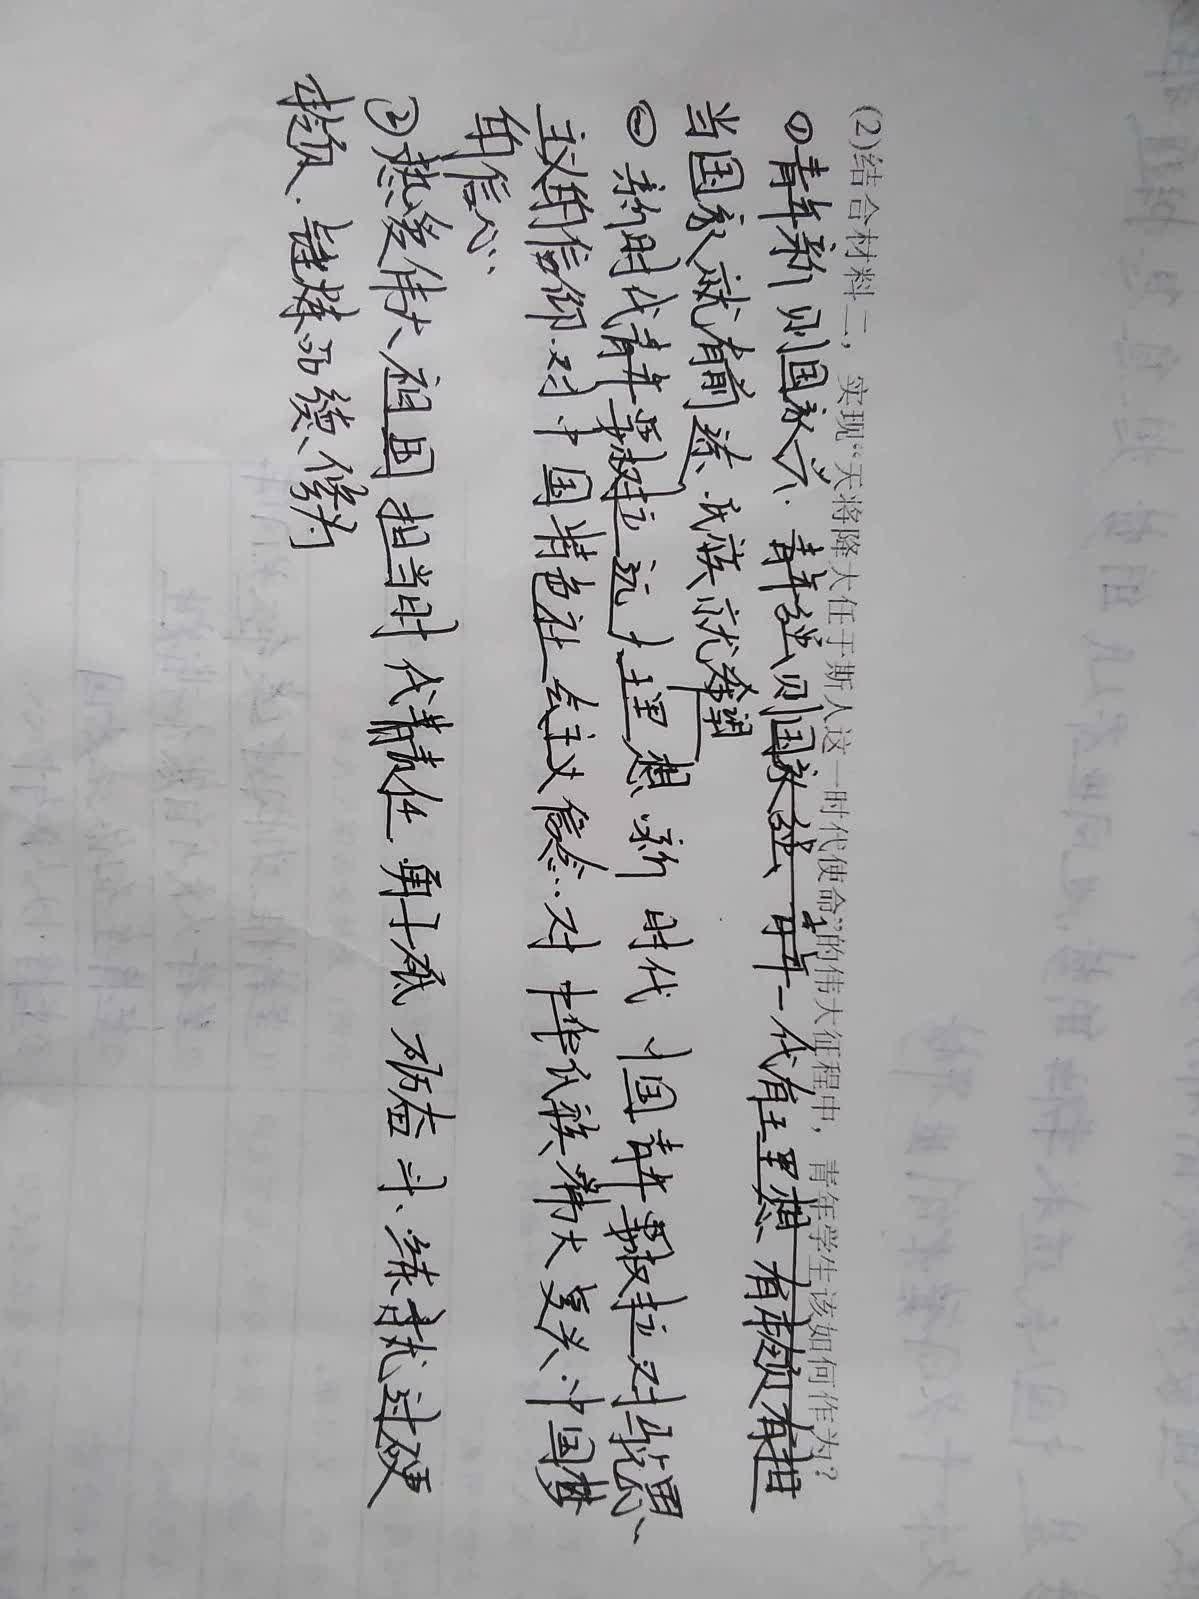 (2)结合材料二，实现“天将降大任于斯人这一时代使命”的伟大征程中，青年学生该如何作为？
①青年新则国家兴. 青年强则国家强 青年一代有理想、有本领有担
当国家就有前途. 民族就希望
② 新时代青年要树立远大理想 新时代中国青年要树立对马克思
主义的信仰.对中国特色社会主义信念..对中华民族伟大复兴.中国梦
的信心.
③热爱伟大祖国担当时代责任 勇于砥砺奋斗、练就过硬
本领. 锤炼品德修为